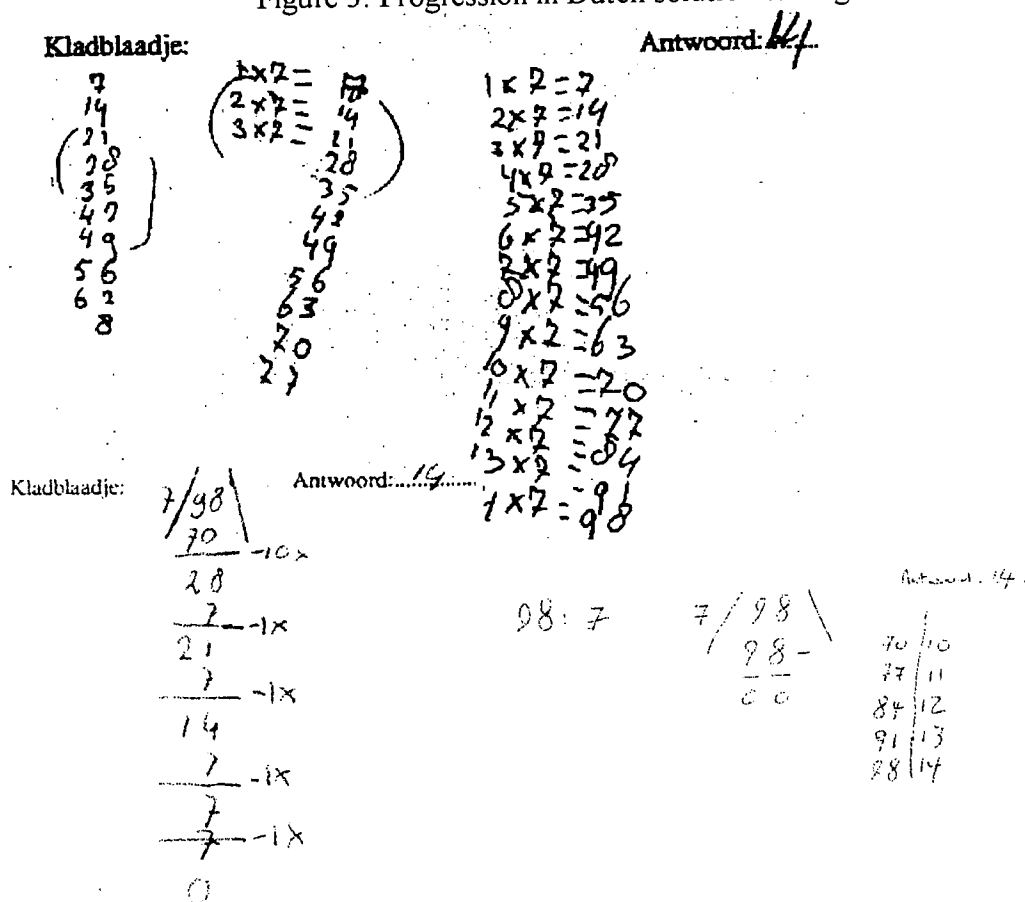 Kladblaadje:
Antwoord: 14
7
14
21
28
35
42
49
56
62
8
1x7=
2x7= 14
3x7= 21
28
35
42
49
56
63
70
77
1x7=7
2x7=14
3x7=21
4x7=28
5x7=35
6x7=42
7x7=49
8x7=56
9x7=63
10x7=70
11x7=77
12x7=84
13x7=91
1x7=98
Kladblaadje:
Antwoord: 14
7/98\
70 -10x
28
7 -1x
21
7 -1x
14
7 -1x
7
7 -1x
0
98:7
7/98\
98-
00
Antwoord: 14
70|10
77|11
84|12
91|13
98|14